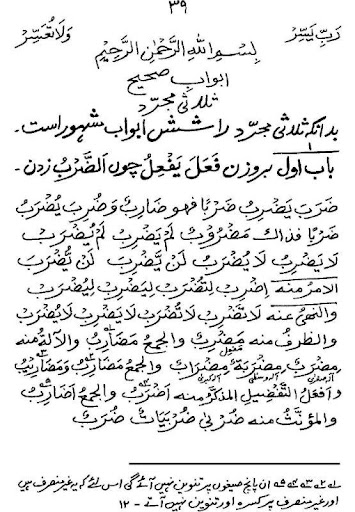 ۳۹
رَبِّ يَسِّرْ وَلَا تُعَسِّرْ
بِسْمِ اللهِ الرَّحْمٰنِ الرَّحِيْمِ
ابوابِ صحیح
ثلاثی مجرّد
بدانکہ ثلاثی مجرّد را شش ابواب مشہور است۔
باب اول بروزن فَعَلَ یَفْعِلُ چوں اَلضَّرْبُ زدن۔
ضَرَبَ یَضْرِبُ ضَرْبًا فہو ضَارِبٌ وَضُرِبَ یُضْرَبُ
ضَرْبًا فذاک مَضْرُوْبٌ لَمْ یَضْرِبْ لَمْ یُضْرَبْ
لَا یَضْرِبُ لَا یُضْرَبُ لَنْ یَّضْرِبَ لَنْ یُّضْرَبَ
الامر منہ اِضْرِبْ لِتُضْرَبْ لِیَضْرِبْ لِیُضْرَبْ
والنہی عنہ لَا تَضْرِبْ لَا تُضْرَبْ لَا یَضْرِبْ لَا یُضْرَبْ
والظرف منہ مَضْرِبٌ والجمع مَضَارِبُ والآلۃ منہ
مِضْرَبٌ مِضْرَبَۃٌ مِضْرَابٌ والجمع مَضَارِبُ وَمَضَارِیْبُ
وافعلُ التَّفْضِیْلِ المذکّر منہ اَضْرَبُ والجمع اَضَارِبُ
والمؤنَّث منہ ضُرْبٰی ضُرْبَیَاتٌ ضُرَبٌ
۱ ۲ ۳ ۴ ۵ ان پانچ صیغوں پر تنوین نہیں آئے گی اس لئے کہ یہ غیر منصرف ہیں
اور غیر منصرف پر کسرہ اور تنوین نہیں آتے ۔ ۱۲